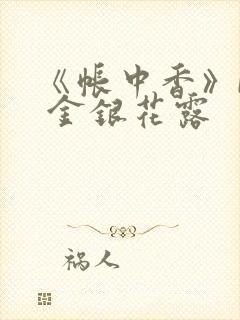 《帐中香》
金银花露
祸人